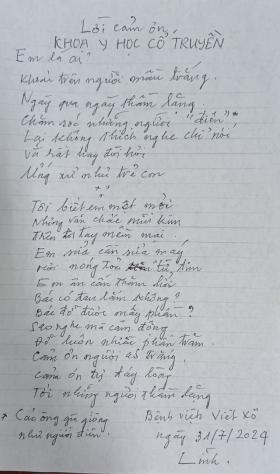 Lời cảm ơn
KHOA Y HỌC CỔ TRUYỀN
Em là ai?
Khoác trên người màu trắng.
Ngày qua ngày thầm lặng
Chăm sóc những người "điên" *
Lại không thích nghe chỉ nói
Và rất hay đòi hỏi
Ứng xử như trẻ con
Tôi biết em mệt mỏi
Nhưng vẫn chắc mũi kim
Thêm đôi tay mềm mại
Em vừa cắm vừa may
Hơi nóng tỏa từ tim
Em ân cần thăm hỏi
Bác có đau lắm không?
Bác đỡ được mấy phần?
Sao nghe mà cảm động
Đỡ luôn nhiều phần trăm
Cảm ơn người áo trắng
Cảm ơn tự đáy lòng
Tới những người thầm lặng
* Các ông già giống
như người điên.
Bệnh viện Việt Xô
ngày 31/7/2024
Linh.